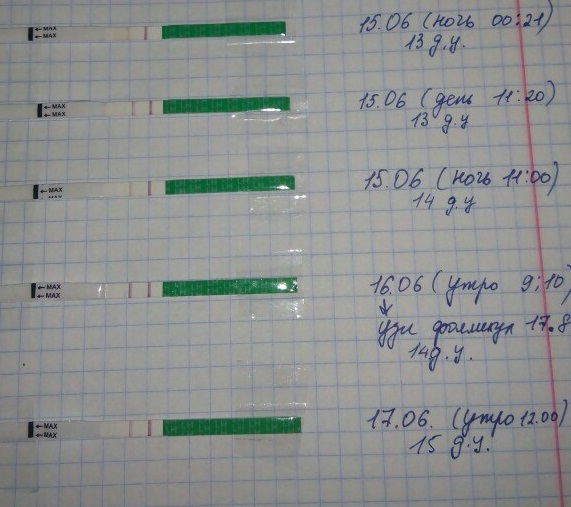 ← MAX
← MAX
15.06 (ночь 00:21)
13 д.у.
← MAX
← MAX
15.06 (день 11:20)
13 д.у
← MAX
15.06 (ночь 11:00)
14 д.у
← MAX
← MAX
16.06 (утро 9:10)
узи фолликул 17.8
14 д.у.
← MAX
← MAX
17.06. (утро 12.00)
15 д.у.